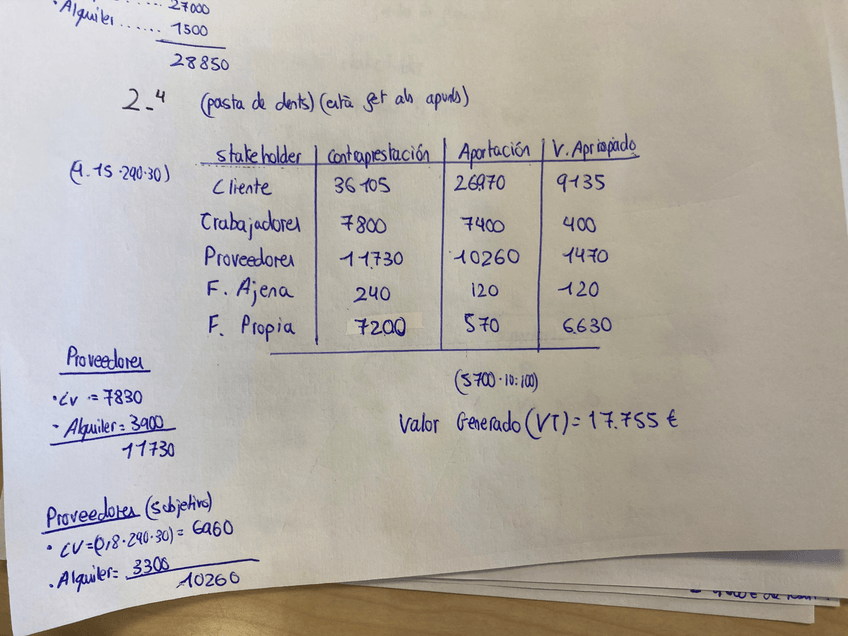 27000
· Alquiler...... 1500
28850
2_4 (pasta de dents) (està fet als apunts)
stakeholder | Contraprestación | Aportación | V. Apropiado
(4.15·290·30)
Cliente 36105 26970 9135
Trabajadores 7800 7400 400
Proveedores 11.730 10260 1470
F. Ajena 240 120 120
F. Propia 7200 570 6630
(5700·10:100)
Valor Generado (VT) = 17.755 €
Proveedores
· CV = 7830
· Alquiler = 3900
11730
Proveedores (Subjetivo)
· CV=(0,8·290·30) = 6960
· Alquiler= 3300
10260